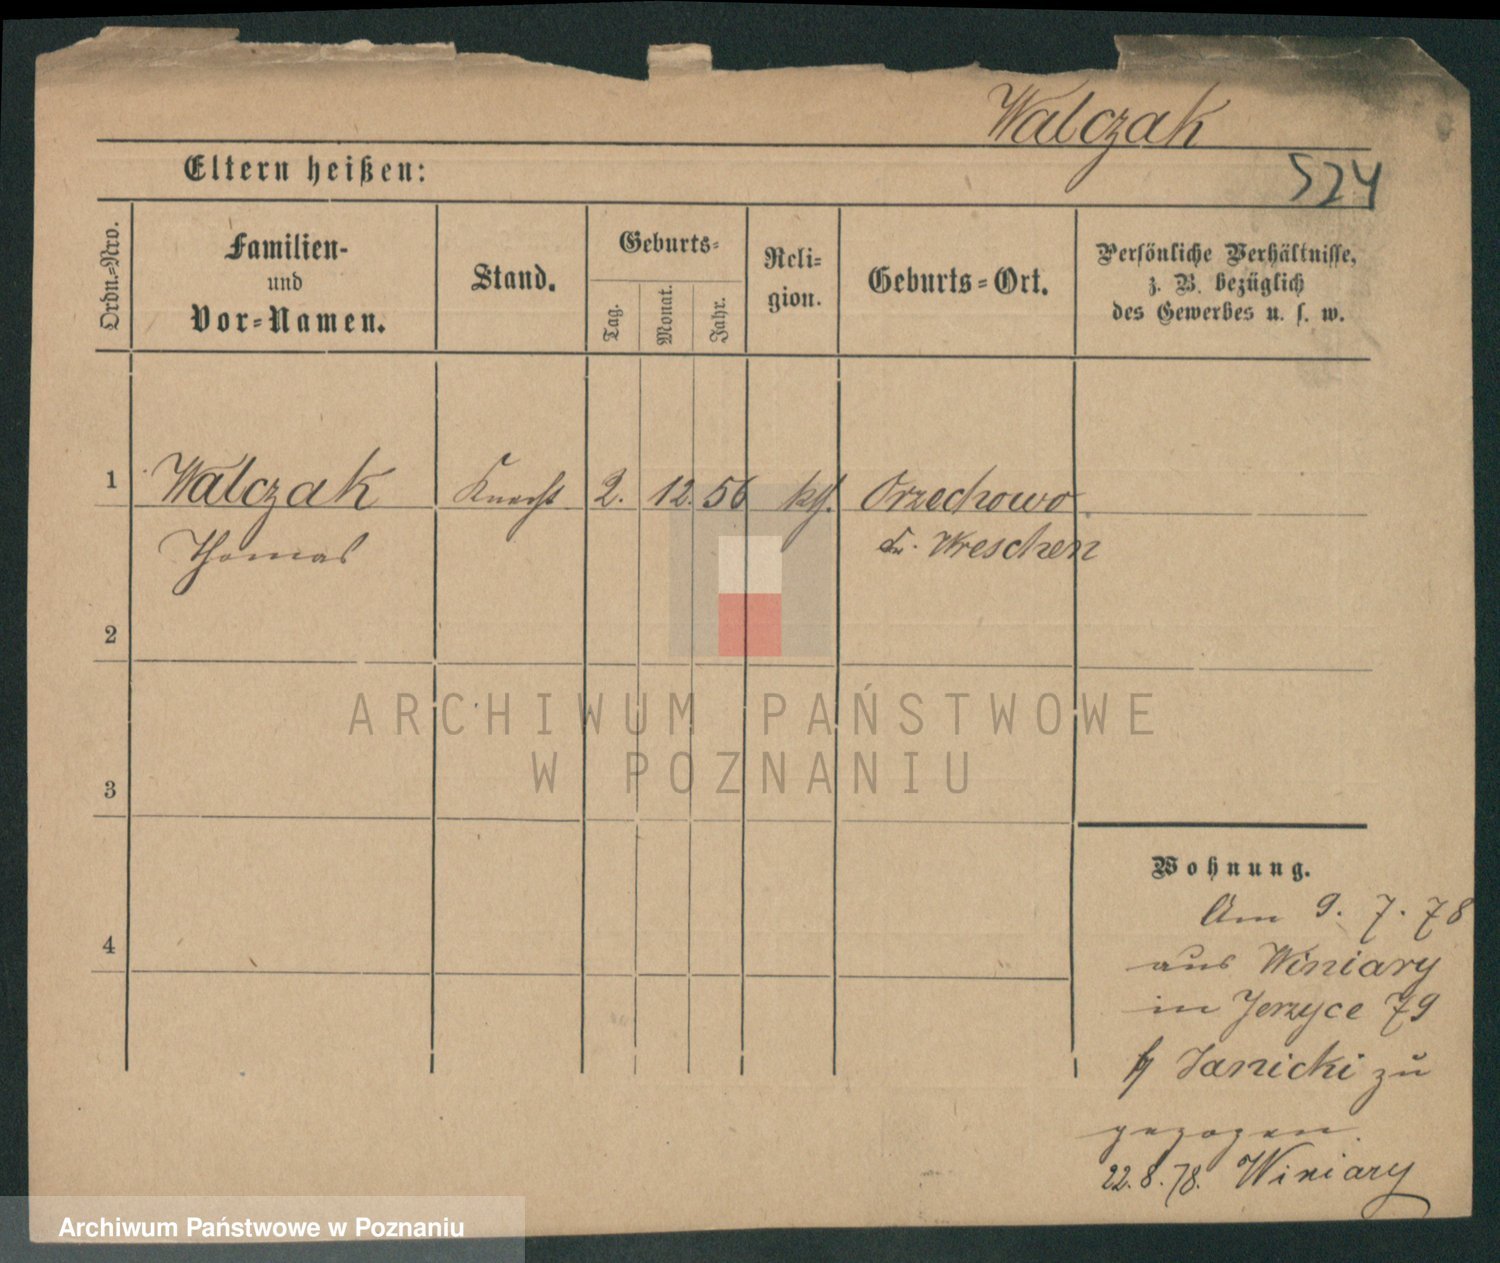 Walczak
524
Eltern heißen:
Ordn.=Nro.
Familien-
und
Vor=Namen.
Stand.
Geburts=
Tag.
Monat.
Jahr.
Reli=
gion.
Geburts=Ort.
Persönliche Verhältnisse,
z. B. bezüglich
des Gewerbes u. s. w.
1 Walczak Knecht 2. 12. 56 kth. Orzechowo
Thomas Kr. Wreschen
2
3
4
ARCHIWUM PAŃSTWOWE
W POZNANIU
Wohnung.
Am 9. 7. 78
aus Winiary
in Jerzyce 79
Janicki zu
gezogen.
22. 8. 78. Winiary
Archiwum Państwowe w Poznaniu